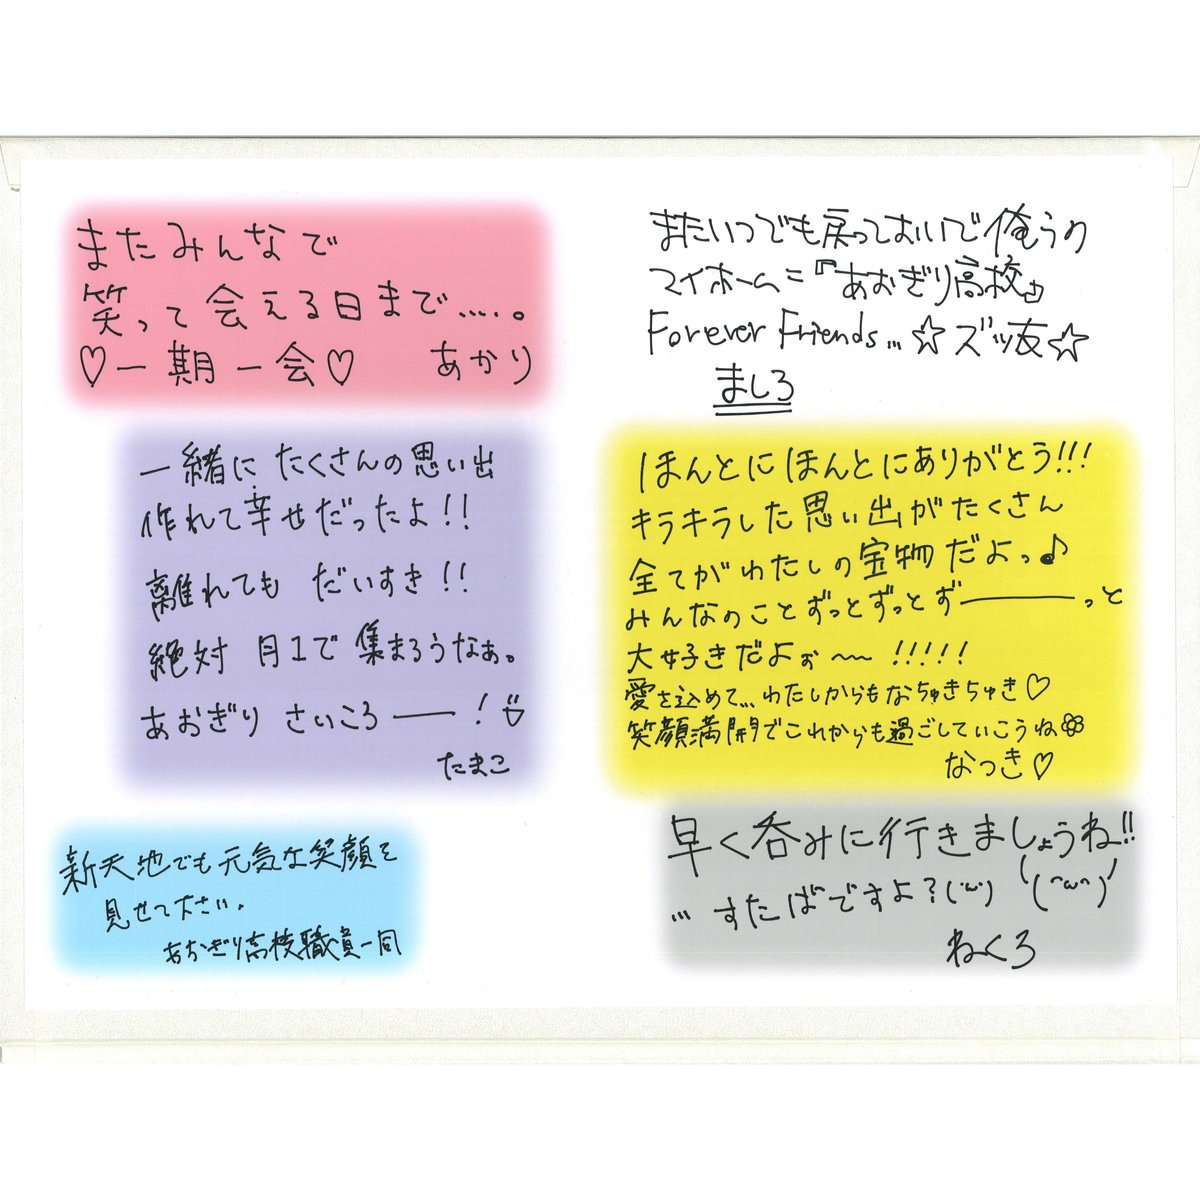 またみんなで
笑って会える日まで.....。
♡一期一会♡ あかり
一緒に たくさんの思い出
作れて幸せだったよ!!
離れても だいすき!!
絶対 月1で 集まろうなぁ。
あおぎり さいころ──!
たまこ
新天地でも元気な笑顔を
見せて下さい。
あおぎり高校職員一同
またいつでも戻っておいで俺らの
マイホーム=『あおぎり高校』
Forever Friends...☆ズッ友☆
ましろ
ほんとにほんとにありがとう!!!
キラキラした思い出がたくさん
全てがわたしの宝物だよっ♪
みんなのことずっとずっとず────っと
大好きだよぉ〜〜!!!!!
愛を込めて...わたしからもなちゅきちゅき♡
笑顔満開でこれからも過ごしていこうね
なつき♡
早く呑みに行きましょうね!!
...すたばですよ?('ω') (^ω^)
ねくろ